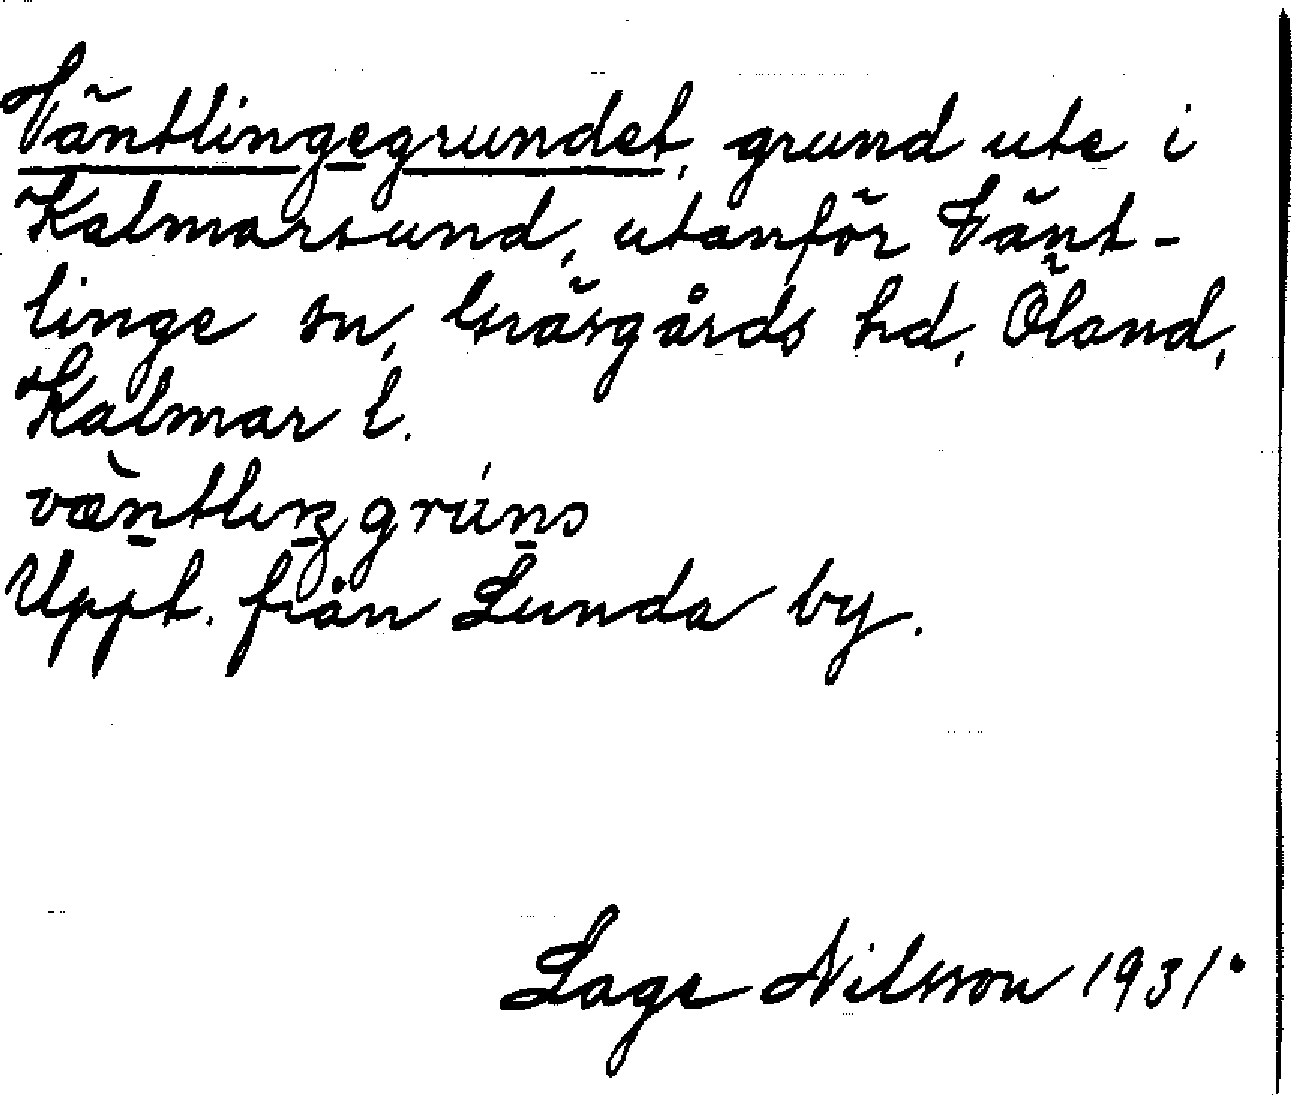 Väntlingegrundet, grund ute i
Kalmarsund, utanför Vänt-
linge sn, Gräsgårds hd, Öland,
Kalmar l.
Uppt. från Lunda by.
Lage Nilsson 1931.